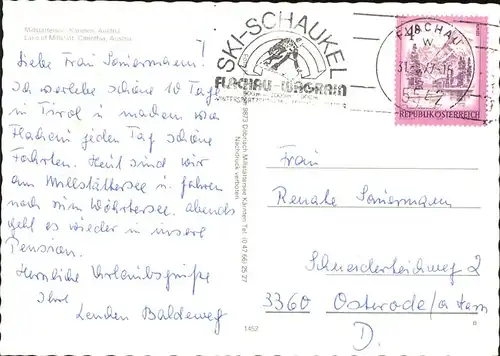 Millstättersee, Kärnten, Austria
Lake of Millstatt, Carinthia, Austria
Liebe Frau Sauermann!
Da verlebe schöne 10 Tage
in Tirol u. machen von
Flachau jeden Tag schöne
Fahrten. Heut sind wir
am Millstättersee u. fahren
noch zum Wörthersee. abends
geht es wieder in unsere
Pension.
Herzliche Urlaubsgrüße
Ihre
Baldeweg
9873 Döbriach-Millstättersee Kärnten Tel. (0 47 66) 25 27
Nachdruck verboten
SKI-SCHAUKEL
FLACHAU-WAGRAIN
FLACHAU
5542
S 4
REPUBLIK ÖSTERREICH
Frau
Renate Sauermann
Schneiderteichweg 2
3360 Osterode/a Harz
D.
1452
R